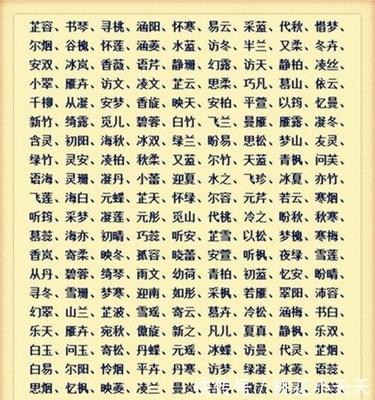 芷容、书琴、寻桃、涵阳、怀寒、易云、采蓝、代秋、惜梦、
尔烟、谷槐、怀莲、涵菱、水蓝、访冬、半兰、又柔、冬卉、
安双、冰岚、香薇、语芹、静珊、幻露、访天、静柏、凌丝、
小翠、雁卉、访文、凌文、芷云、思柔、巧凡、慕山、依云、
千柳、从凝、安梦、香旋、映天、安柏、平萱、以筠、忆曼、
新竹、绮露、觅儿、碧蓉、白竹、飞兰、曼雁、雁露、凝冬、
含灵、初阳、海秋、冰双、绿兰、盼易、思松、梦山、友灵、
绿竹、灵安、凌柏、秋柔、又蓝、尔竹、天蓝、青枫、问芙、
语海、灵珊、凝丹、小蕾、迎夏、水之、飞珍、冰夏、亦竹、
飞莲、海白、元蝶、芷天、怀绿、尔容、元芹、若云、寒烟、
听筠、采梦、凝莲、元彤、觅山、代桃、冷之、盼秋、秋寒、
慕蕊、海亦、初晴、巧蕊、听安、芷雪、以松、梦槐、寒梅、
香岚、寄柔、映冬、孤容、晓蕾、安萱、听枫、夜绿、雪莲、
从丹、碧蓉、绮琴、雨文、幼荷、青柏、初蓝、忆安、盼晴、
寻冬、雪珊、梦寒、迎南、如彤、采枫、若雁、翠阳、沛容、
幻翠、山兰、芷波、雪瑶、寄云、慕卉、冷松、涵梅、书白、
乐天、雁卉、宛秋、傲旋、新之、凡儿、夏真、静枫、乐双、
白玉、问玉、寄松、丹蝶、元瑶、冰蝶、访曼、代灵、芷烟、
白易、尔阳、怜烟、平卉、丹寒、访梦、绿凝、冰菱、语蕊、
思烟、忆枫、映菱、凌兰、曼岚